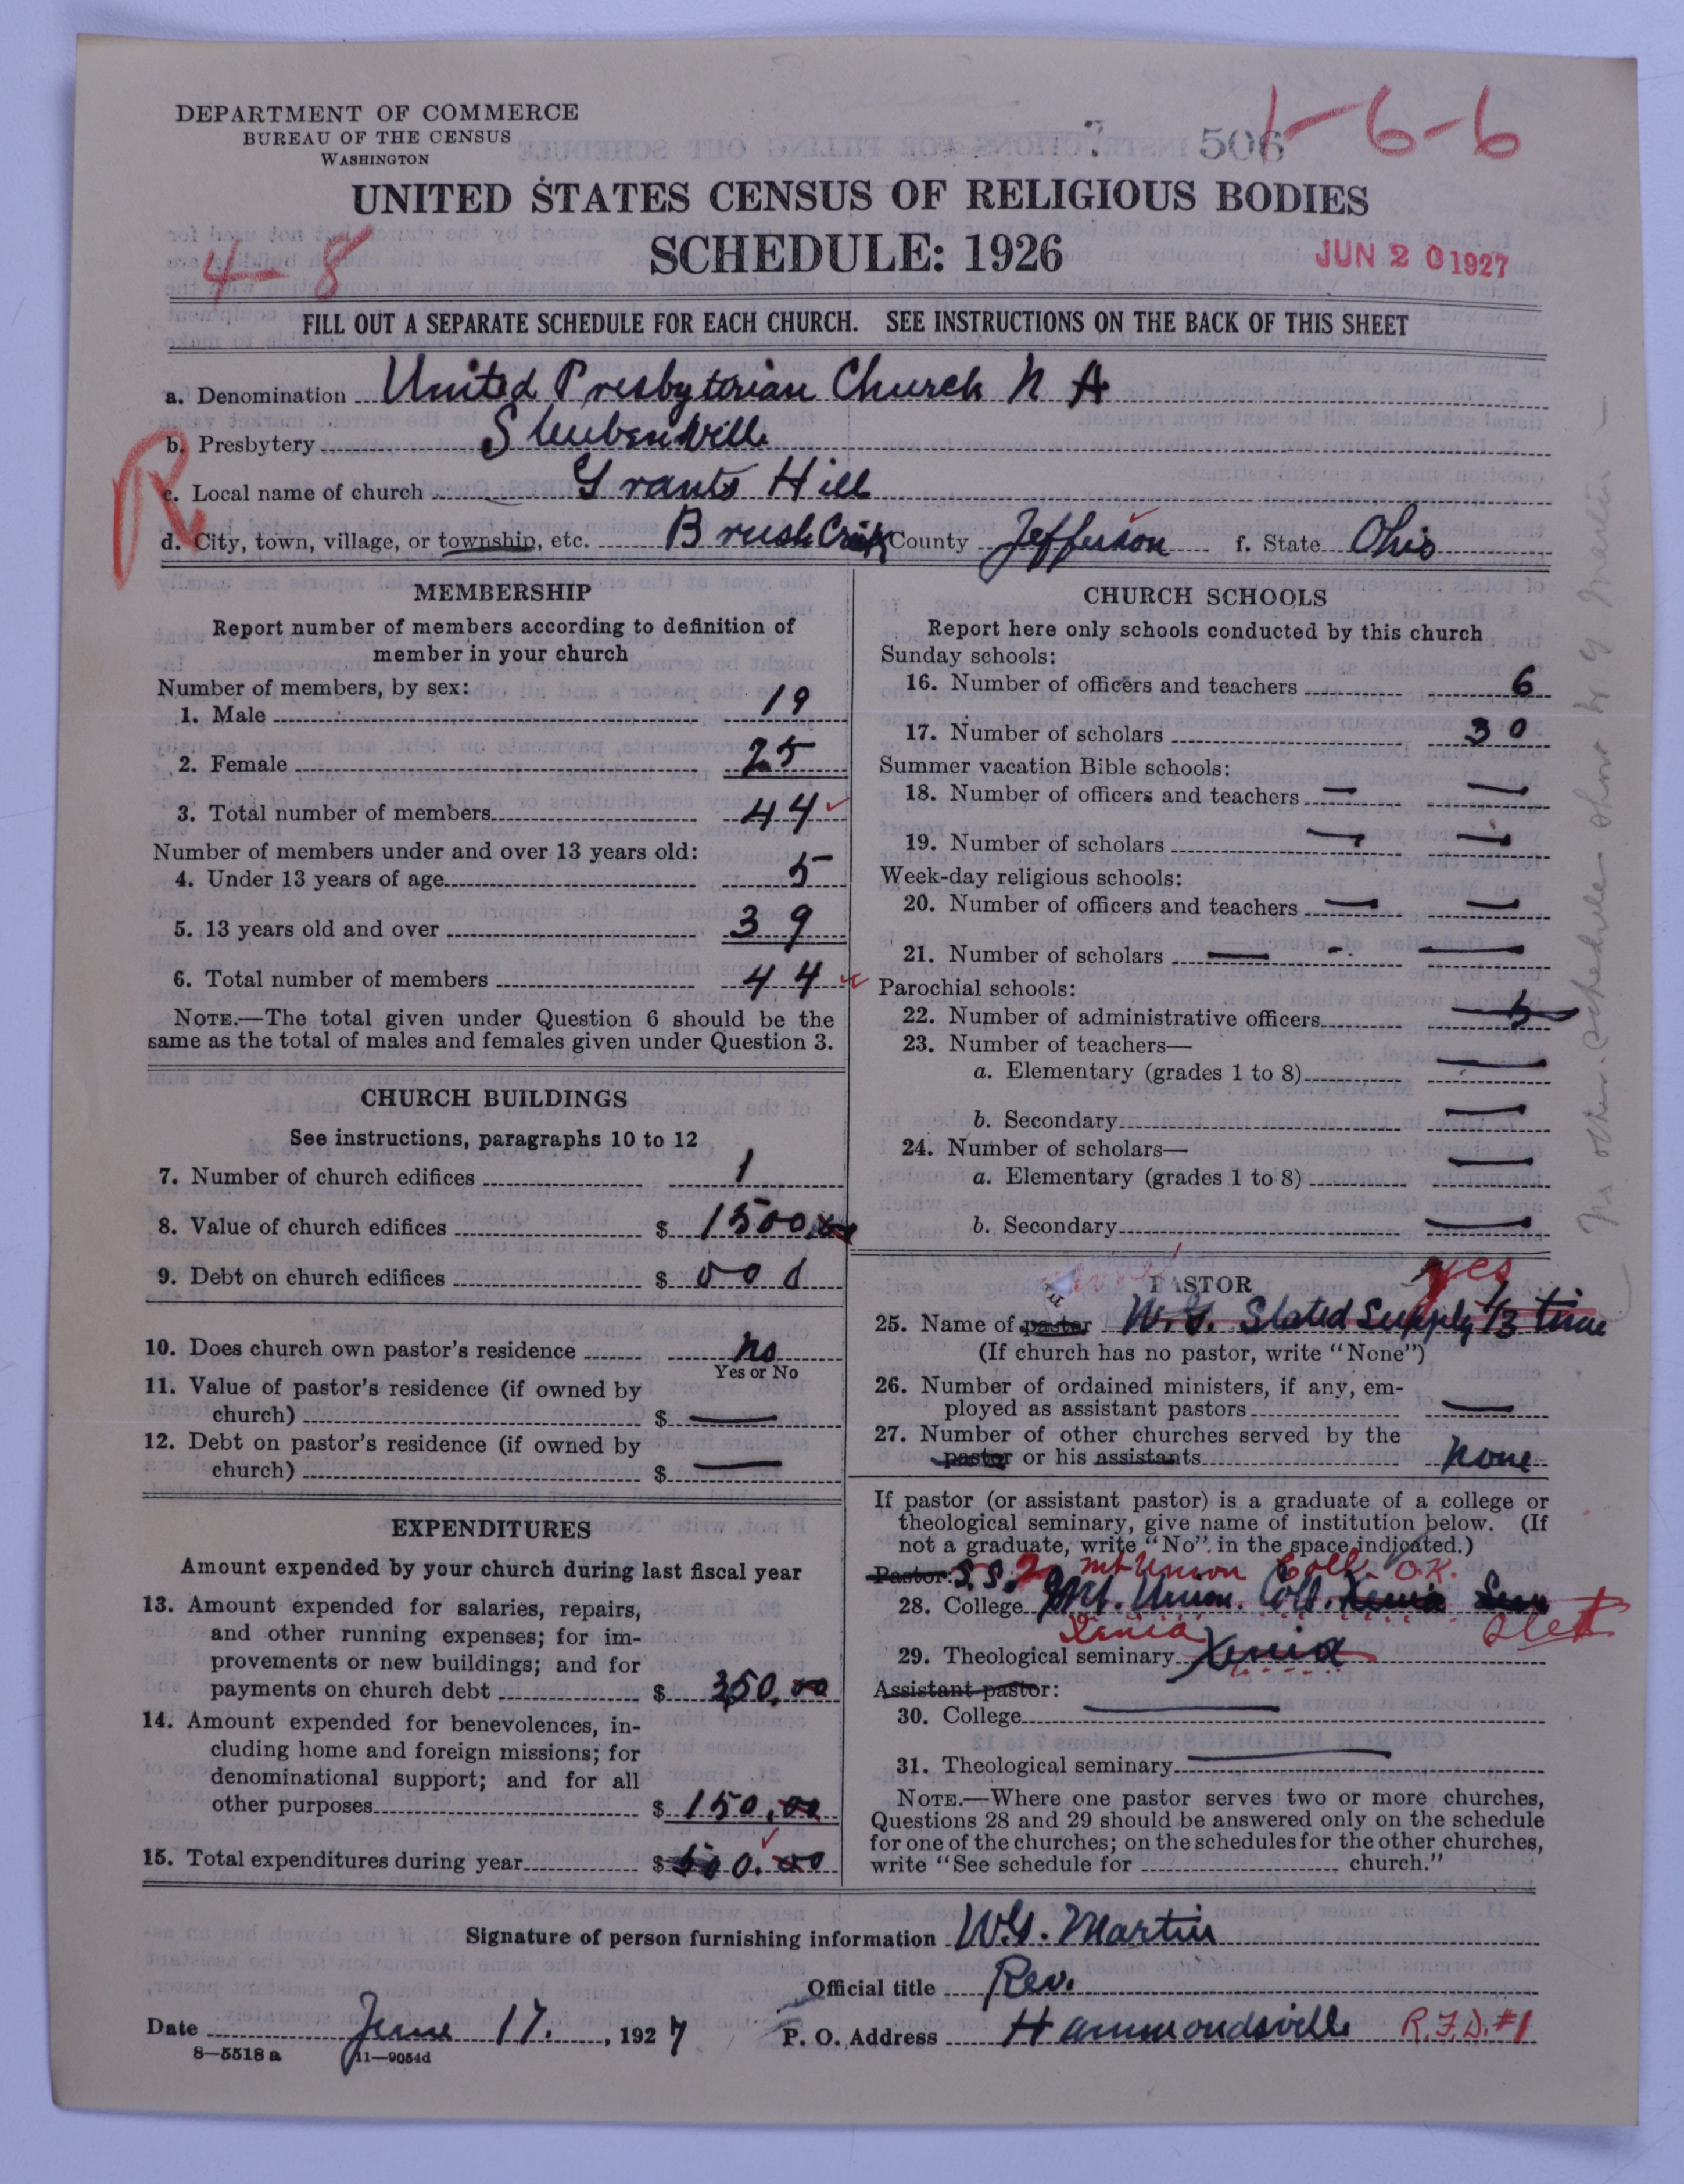 DEPARTMENT OF COMMERCE
BUREAU OF THE CENSUS
WASHINGTON
506
1-6-6
UNITED STATES CENSUS OF RELIGIOUS BODIES
4-8
SCHEDULE: 1926
JUN 20 1927
FILL OUT A SEPARATE SCHEDULE FOR EACH CHURCH. SEE INSTRUCTIONS ON THE BACK OF THIS SHEET
a. Denomination United Presbyterian Church N A
b. Presbytery Steubenville
R
c. Local name of church Grants Hill
d. City, town, village, or township, etc. Brush Creek County Jefferson f. State Ohio
MEMBERSHIP
Report number of members according to definition of
member in your church
Number of members, by sex:
1. Male 19
2. Female 25
3. Total number of members 44
Number of members under and over 13 years old:
4. Under 13 years of age 5
5. 13 years old and over 39
6. Total number of members 44
NOTE.—The total given under Question 6 should be the
same as the total of males and females given under Question 3.
CHURCH BUILDINGS
See instructions, paragraphs 10 to 12
7. Number of church edifices 1
8. Value of church edifices $ 1500.00
9. Debt on church edifices $ 000
10. Does church own pastor's residence no
Yes or No
11. Value of pastor's residence (if owned by
church) $ —
12. Debt on pastor's residence (if owned by
church) $ —
EXPENDITURES
Amount expended by your church during last fiscal year
13. Amount expended for salaries, repairs,
and other running expenses; for im-
provements or new buildings; and for
payments on church debt $ 350.00
14. Amount expended for benevolences, in-
cluding home and foreign missions; for
denominational support; and for all
other purposes $ 150.00
15. Total expenditures during year $ 500.00
CHURCH SCHOOLS
Report here only schools conducted by this church
Sunday schools:
16. Number of officers and teachers 6
17. Number of scholars 30
Summer vacation Bible schools:
18. Number of officers and teachers — —
19. Number of scholars — —
Week-day religious schools:
20. Number of officers and teachers — —
21. Number of scholars — - —
Parochial schools:
22. Number of administrative officers
23. Number of teachers—
a. Elementary (grades 1 to 8) —
b. Secondary —
24. Number of scholars—
a. Elementary (grades 1 to 8) —
b. Secondary —
PASTOR
yes
25. Name of pastor W.G. Stated Supply 1/3 time
(If church has no pastor, write "None")
26. Number of ordained ministers, if any, em-
ployed as assistant pastors —
27. Number of other churches served by the
pastor or his assistants none
If pastor (or assistant pastor) is a graduate of a college or
theological seminary, give name of institution below. (If
not a graduate, write "No" in the space indicated.)
Pastor: S.S. Mt Union Coll. O.K.
28. College Mt. Union. Coll. Xenia Sem
Xenia
29. Theological seminary Xenia
Assistant pastor:
30. College —
31. Theological seminary —
NOTE.—Where one pastor serves two or more churches,
Questions 28 and 29 should be answered only on the schedule
for one of the churches; on the schedules for the other churches,
write "See schedule for church."
Signature of person furnishing information W.G. Martin
Official title Rev.
Date June 17, 1927
P. O. Address Hammondsville R.F.D. #1
8—5518 a 11—9054d
No other schedules show W G Martin —